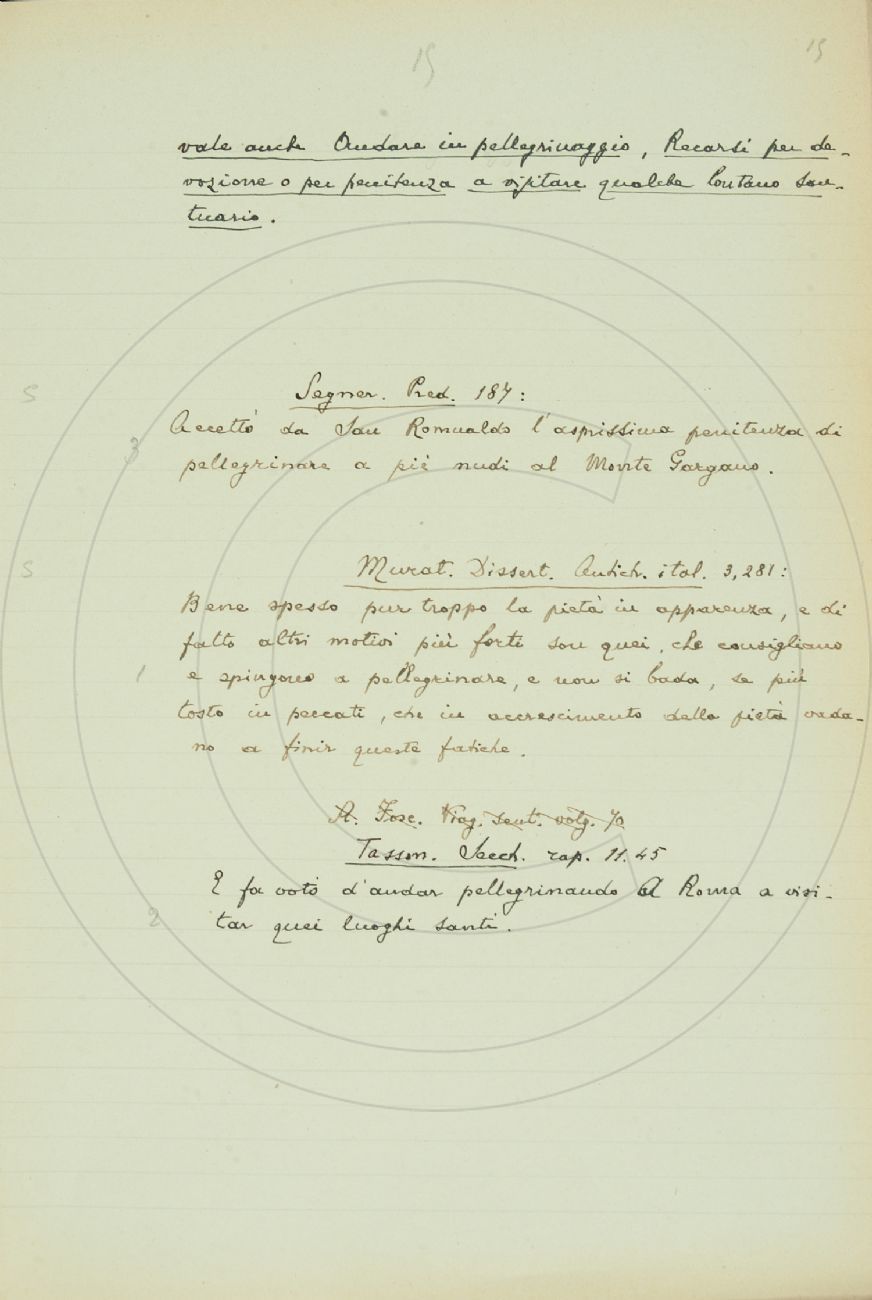 15 15
vale anche Andare in pellegrinaggio, Recarsi per de-
vozione o per penitenza a visitare qualche lontano San-
tuario.
S
Segner. Pred. 187:
Accettò da San Romualdo l'asprissima penitenza di
3
pellegrinare a piè nudi al Monte Gargano.
S
Murat. Dissert. Antich. ital. 3,281:
Bene spesso pur troppo la pietà in apparenza, e di
fatto altri motivi più forti son quei, che consigliano
1
e spingono a pellegrinare, e non si bada, se più
tosto in peccati, che in accrescimento della pietà vada-
no a finir queste fatiche.
Fosc. Viag. sent.
Tasson. Secch. rap. 11.45
E fa voto d'andar pellegrinando A Roma a visi-
2
tar quei luoghi santi.